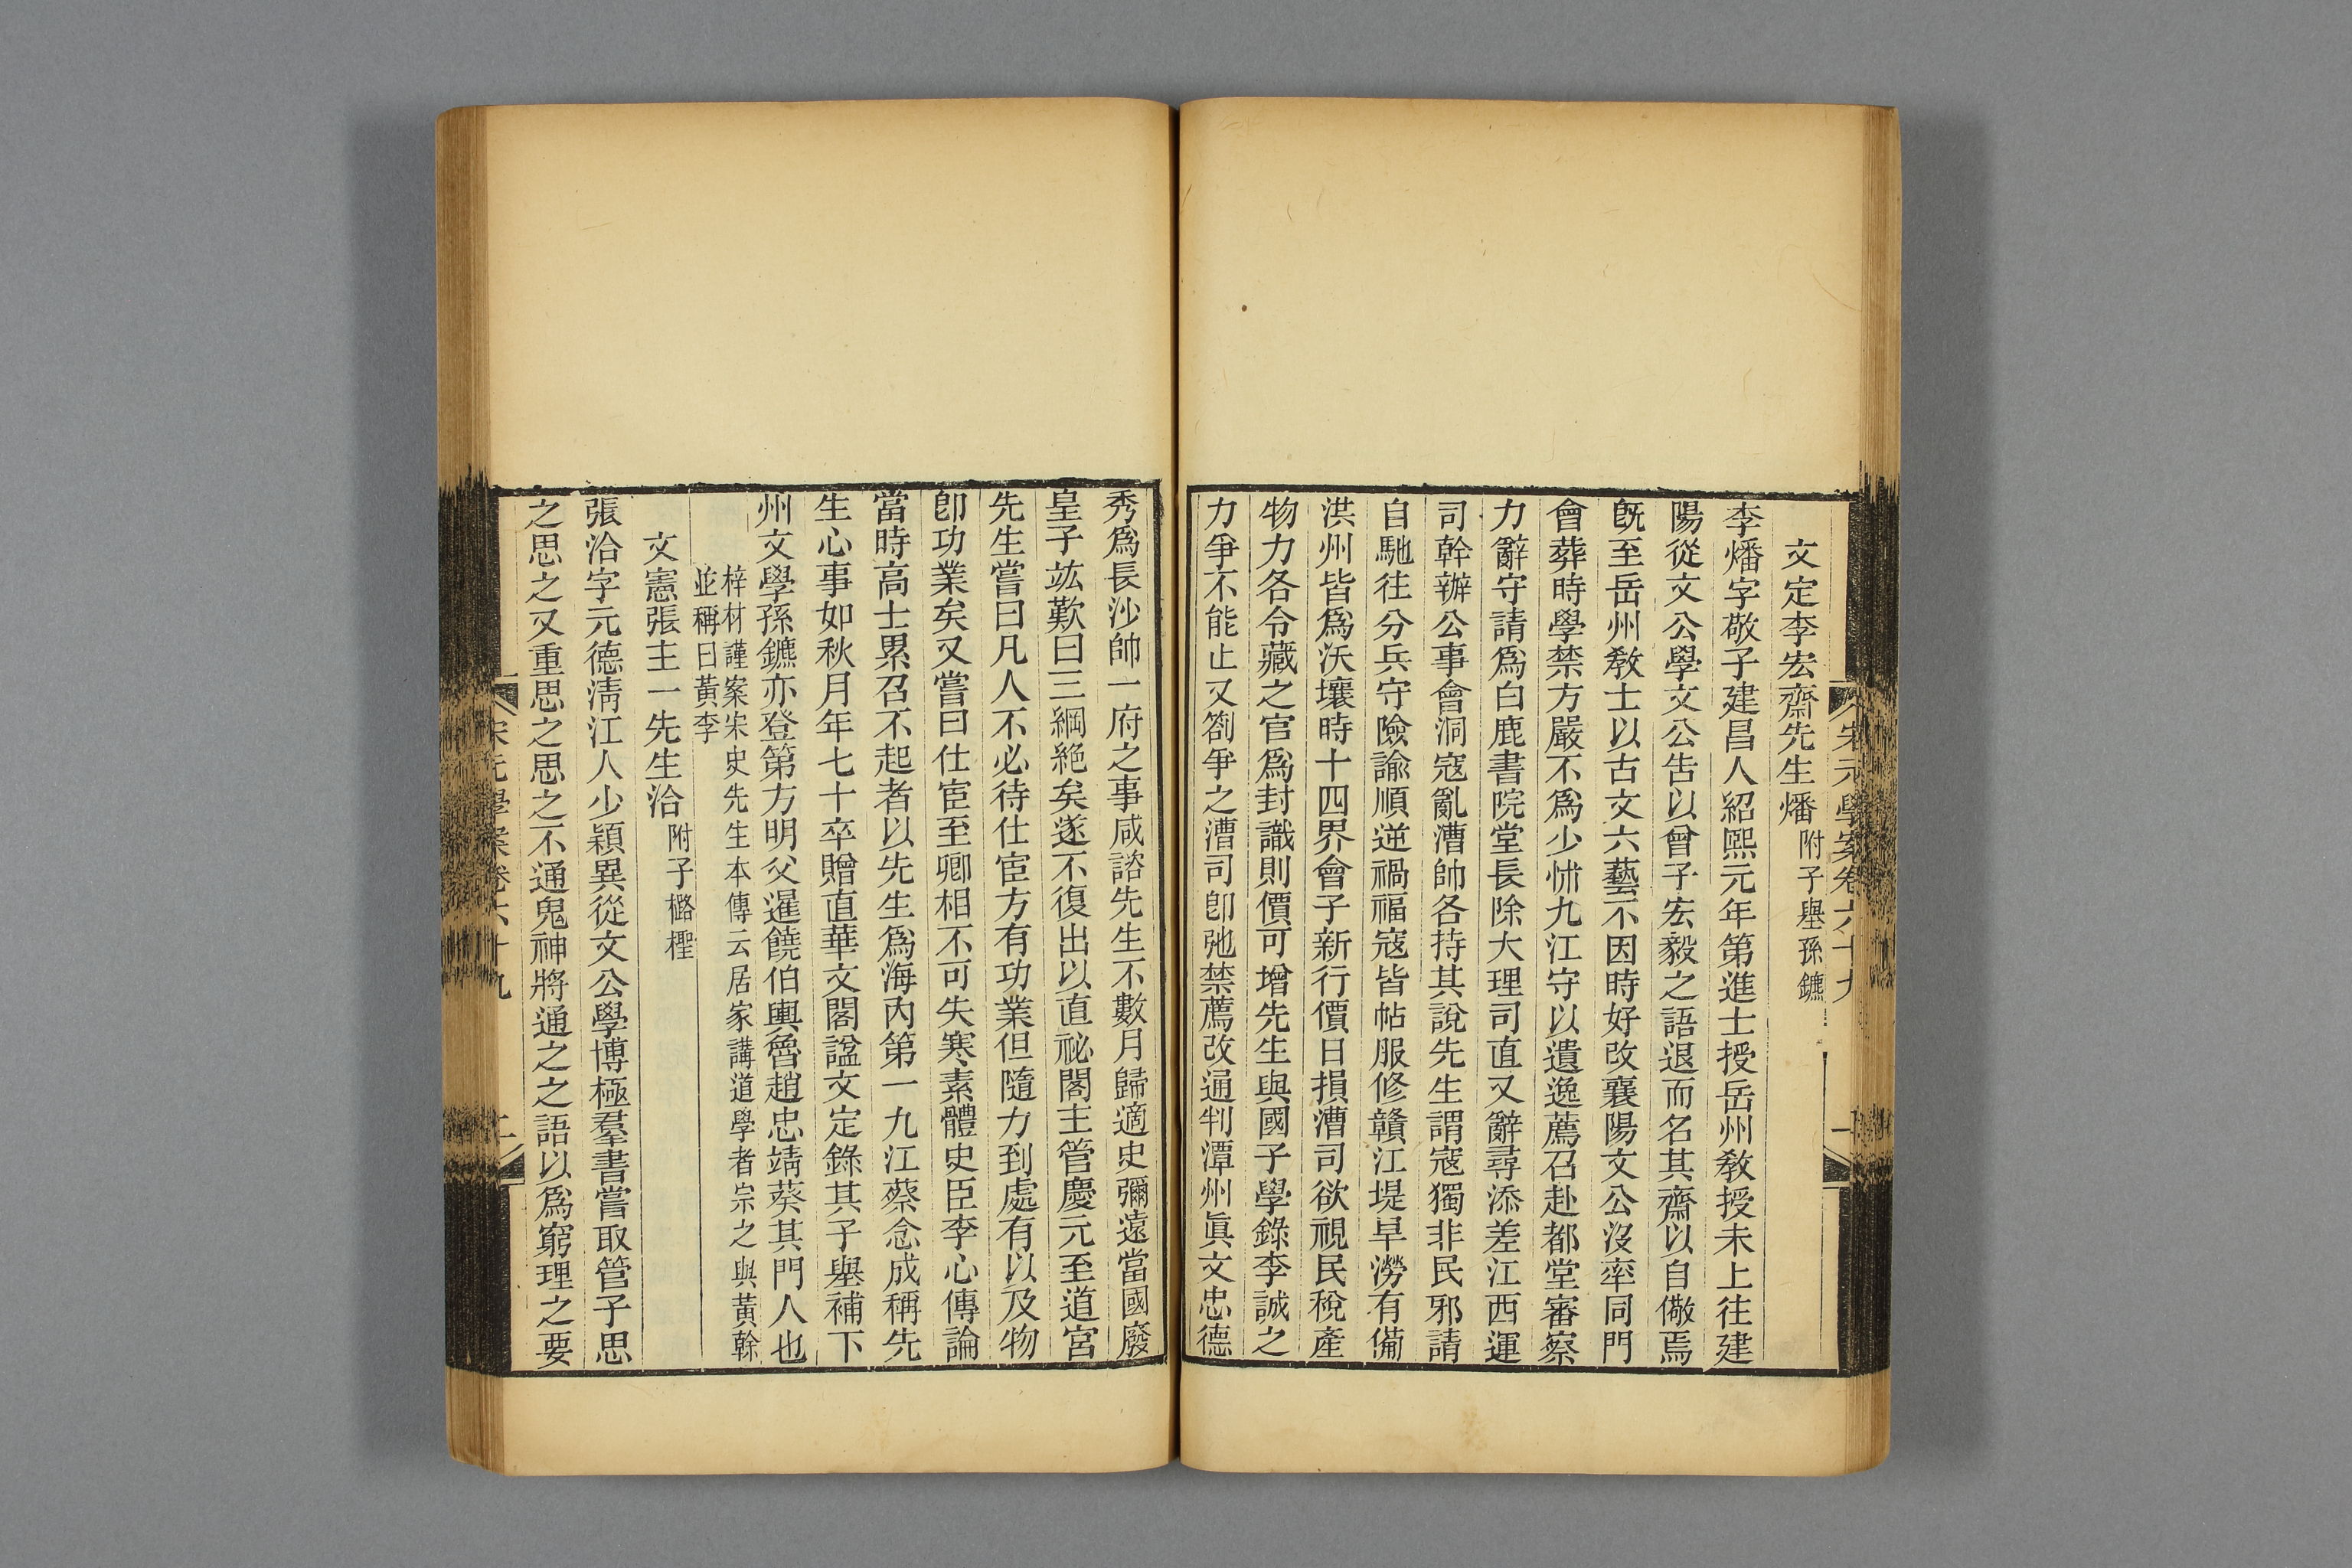 宋元學案卷六十九
文定李宏齋先生燔附子舉孫鑣
李燔字敬子建昌人紹熙元年第進士授岳州教授未上往建
陽從文公學文公告以曾子宏毅之語退而名其齋以自儆焉
旣至岳州教士以古文六藝不因時好改襄陽文公沒率同門
會葬時學禁方嚴不爲少怵九江守以遺逸薦召赴都堂審察
力辭守請爲白鹿書院堂長除大理司直又辭尋添差江西運
司幹辦公事會洞寇亂漕帥各持其說先生謂寇獨非民邪請
自馳往分兵守險諭順逆禍福寇皆帖服修贛江堤旱澇有備
洪州皆爲沃壤時十四界會子新行價日損漕司欲視民稅產
物力各令藏之官爲封識則價可增先生與國子學錄李誠之
力爭不能止又劄爭之漕司卽弛禁薦改通判潭州眞文忠德
秀爲長沙帥一府之事咸諮先生不數月歸適史彌遠當國廢
皇子竑歎曰三綱絕矣遂不復出以直祕閣主管慶元至道宮
先生嘗曰凡人不必待仕宦方有功業但隨力到處有以及物
卽功業矣又嘗曰仕宦至卿相不可失寒素體史臣李心傳論
當時高士累召不起者以先生爲海內第一九江蔡念成稱先
生心事如秋月年七十卒贈直華文閣諡文定錄其子舉補下
州文學孫鑣亦登第方明父暹饒伯輿魯趙忠靖葵其門人也
梓材謹案宋史先生本傳云居家講道學者宗之與黃榦
並稱曰黃李
文憲張主一先生洽附子櫧檉
張洽字元德淸江人少穎異從文公學博極羣書嘗取管子思
之思之又重思之思之不通鬼神將通之之語以爲窮理之要
宋元學案卷六十九